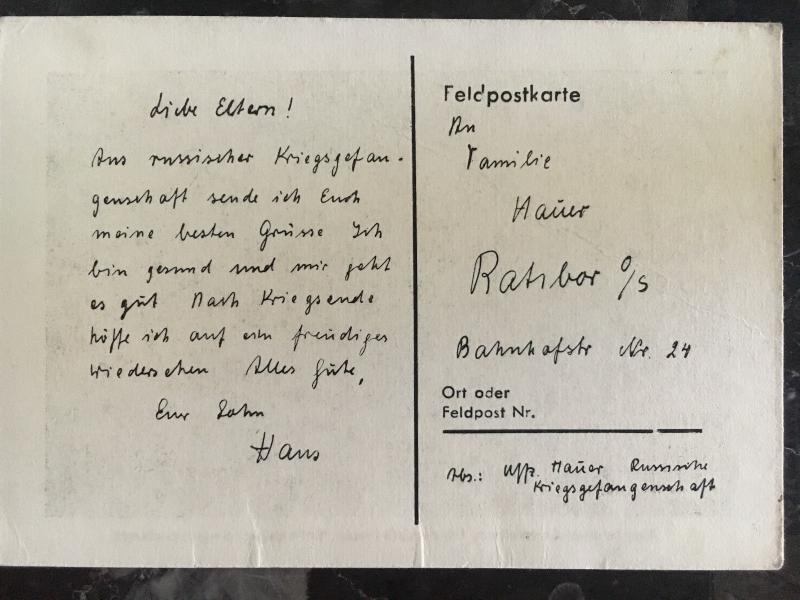 Liebe Eltern!
Aus russischer Kriegsgefan-
genschaft sende ich Euch
meine besten Grüsse Ich
bin gesund und mir geht
es gut Nach Kriegsende
hoffe ich auf ein freudiges
Wiedersehen Alles Gute,
Eur Sohn
Hans
Feldpostkarte
An
Familie
Hauer
Ratibor O/S
Bahnhofstr Nr. 24
Ort oder
Feldpost Nr.
Abs.: Uffz. Hauer Russische
Kriegsgefangenschaft